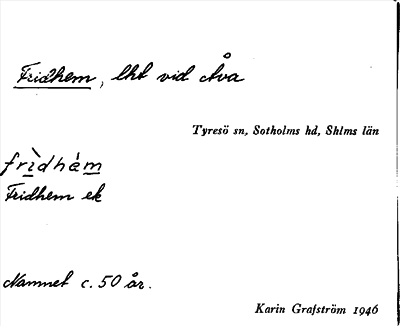 Fridhem, lht vid Åva
Tyresö sn, Sotholms hd, Shlms län
frìdhè̀m
Fridhem ek
Namnet c. 50 år.
Karin Grafström 1946